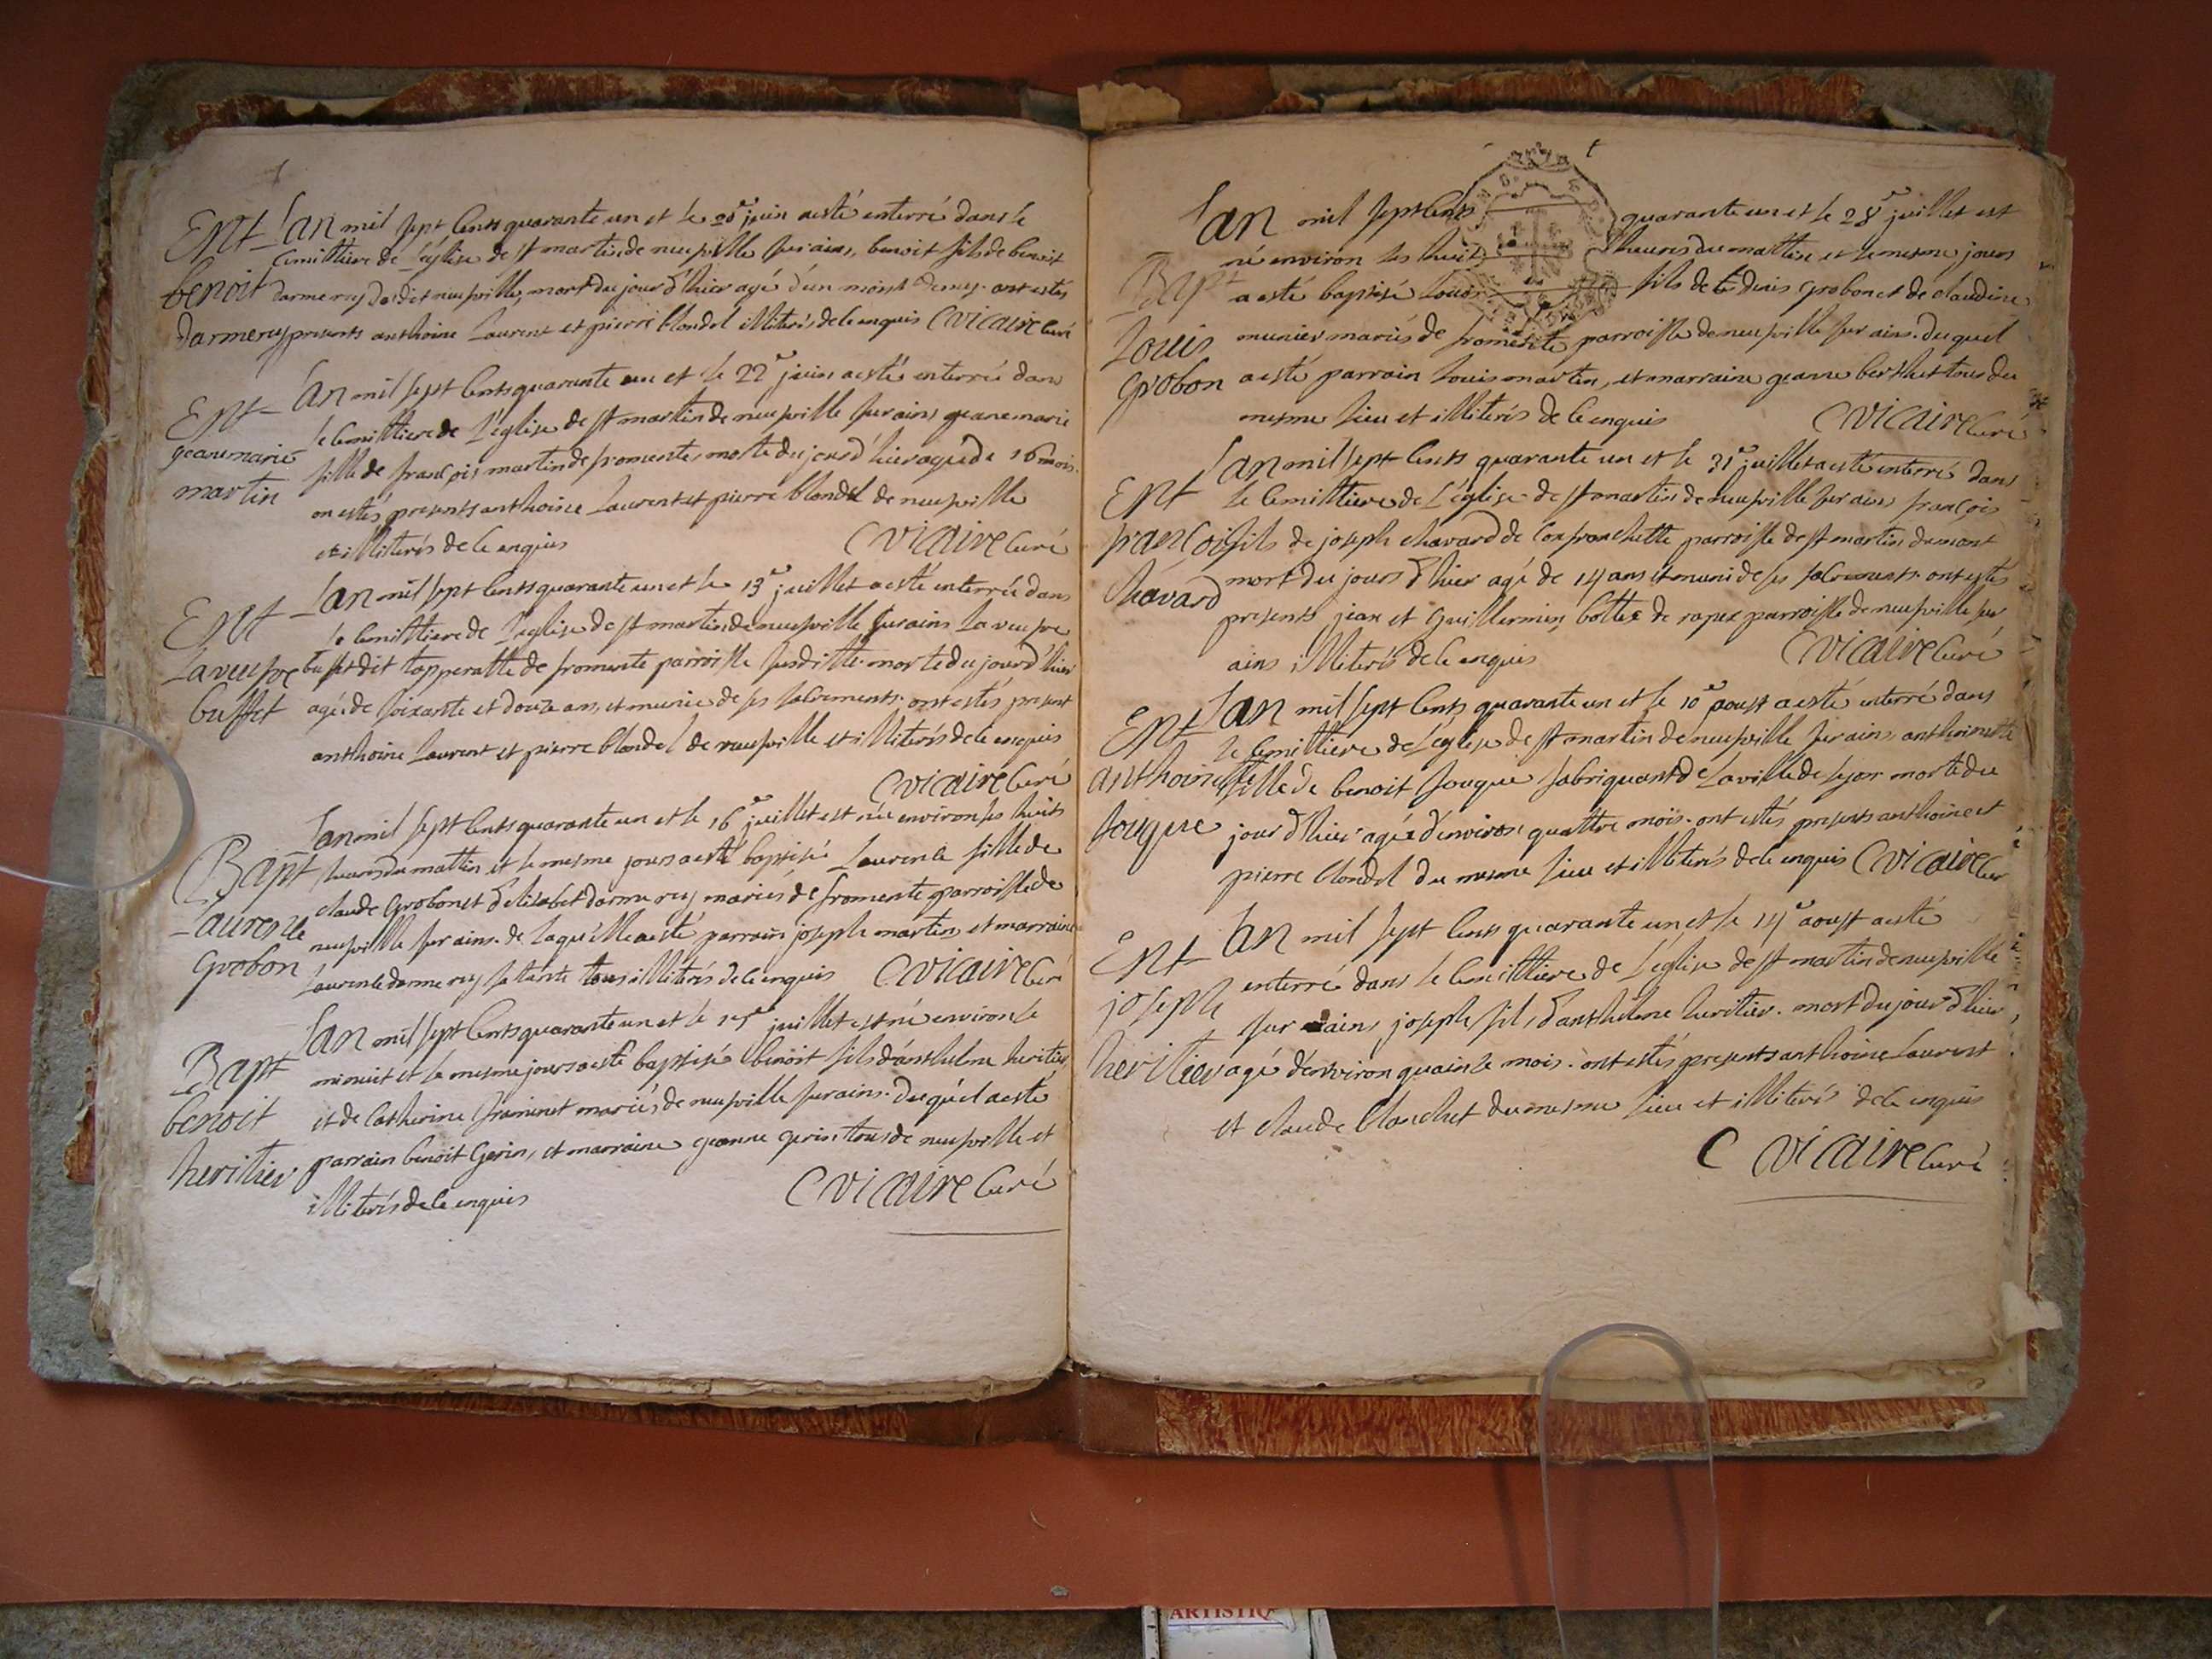 Ent
benoit
darmerey
Lan mil sept cents quarante un et le 20e juin a esté enterré dans le
cemittiere de l'église de st martin de neusville sur ains, benoit fils de benoit
darmerey dudit neusville, mort du jour d'hier agé d'un moist demey. ont estés
presents anthoine Laurent et pierre blondel illiterés de ce enquis C vicaire curé
Ent
geanemarie
martin
Lan mil sept cents quarante un et le 22e juin a estée enterrée dans
le cemittiere de l'église de st martin de neusville sur ains geanemarie
fille de françois martin de fromente, morte du jour d'hier agée de 16 mois.
on estés presents anthoine Laurent et pierre blondel de neusville
et illiterés de ce enquis C vicaire curé
Ent
La veusve
buffet
Lan mil sept cents quarante un et le 13e juillet a esté enterrée dans
le cemittiere de l'eglise de st martin de neusville sur ains La veusve
buffet dit topperatte de fromente parroisse susditte. morte du jour d'hier
agée de soixante et douze ans, et munie de ses sacrements. ont estés present
anthoine Laurent et pierre blondel de neusville et illiterés de ce enquis
C vicaire curé
Bapt
Laurence
Grobon
Lan mil sept cents quarante un et le 16e juillet est née environ les huits
heures du mattin et le mesme jours a esté baptisée Laurence fille de
claude Grobon et d'elisabet darmerey mariés de fromente parroisse de
neusville sur ains. de laquelle a esté parrain joseph martin et marraine
Laurence darmerey sa tante tous illiterés de ce enquis C vicaire curé
Bapt
benoit
heritier
Lan mil sept cents quarante un et le 17e juillet est né environ le
minuit et le mesme jours a esté baptisé benoit fils d'anthelme heritier
et de Catherine framinet mariés de neusville sur ains. duquel a esté
parrain benoit Gerin, et marraine geanne gerin tous de neusville et
illiterés de ce enquis C vicaire curé
Bapt
Louis
Grobon
Lan mil sept cents quarante un et le 28e juillet est
né environ les huit heures du mattin et le mesme jours
a esté baptisé Louis fils de denis grobon et de claudine
munier mariés de fromente parroisse de neusville sur ains. duquel
a esté parrain Louis martin, et marraine geanne berthet tous du
mesme lieu et illiterés de ce enquis C vicaire curé
Ent
françois
chavard
Lan mil sept cents quarante un et le 31e juillet a esté enterré dans
le cemittiere de l'église de st martin de neusville sur ains françois
fils de joseph chavard de Confranchette parroisse de st martin du mont
mort du jours d'hier agé de 14 ans et muni de ses sacrements. ont estés
presents jean et Guillermin bottex de rapex parroisse de neusville sur
ains illiterés de ce enquis C vicaire curé
Ent
anthoinette
fouque
Lan mil sept cents quarante un et le 10e aoust a esté enterré dans
le cemittiere de l'église de st martin de neusville sur ains anthoinette
fille de benoit fouque fabriquant de la ville de lyon morte du
jour d'hier agée d'environ quattre mois. ont estés presents anthoine et
pierre blondel du mesme lieu et illiterés de ce enquis C vicaire cur
Ent
joseph
heritier
Lan mil sept cents quarante un et le 14e aoust a esté
enterré dans le cemittiere de l'église de st martin de neusville
sur ains joseph fils d'anthelme heritier. mort du jour d'hier
agé d'environ quainze mois. ont estés presents anthoine Laurent
et claude blanchet du mesme lieu et illiterés de ce enquis
C vicaire curé
ARTISTIQ